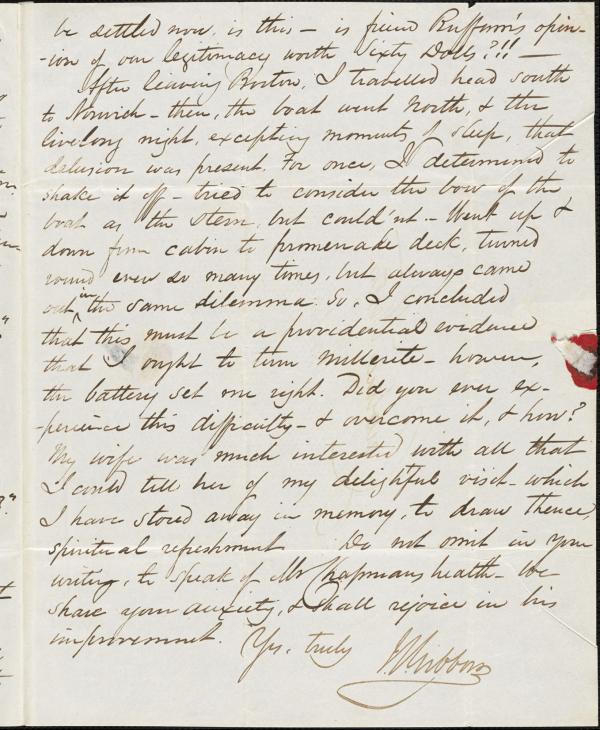 be settled now, is this - is friend Buffum's opin-
-ion of our legitimacy worth Sixty Dolls?!! -
After leaving Boston, I travelled head south
to Norwich - then, the boat went North, & the
livelong night, excepting moments of sleep, that
delusion was present. For once, I determined to
shake it off - tried to consider the bow of the
boat as the stern, but could'nt - Went up &
down from cabin to promenade deck, turned
round ever so many times, but always came
out in the same dilemma. So, I concluded
that this must be a providential evidence
that I ought to turn Millerite - however,
the battery set me right. Did you ever ex-
-perience this difficulty - & overcome it, & how?
My wife was much interested with all that
I could tell her of my delightful visit - which
I have stored away in memory, to draw thence,
spiritual refreshment. Do not omit in your
writing, to speak of Mr Chapmans health - We
share your anxiety, & shall rejoice in his
improvement. Yrs. truly
J.S. Gibbons